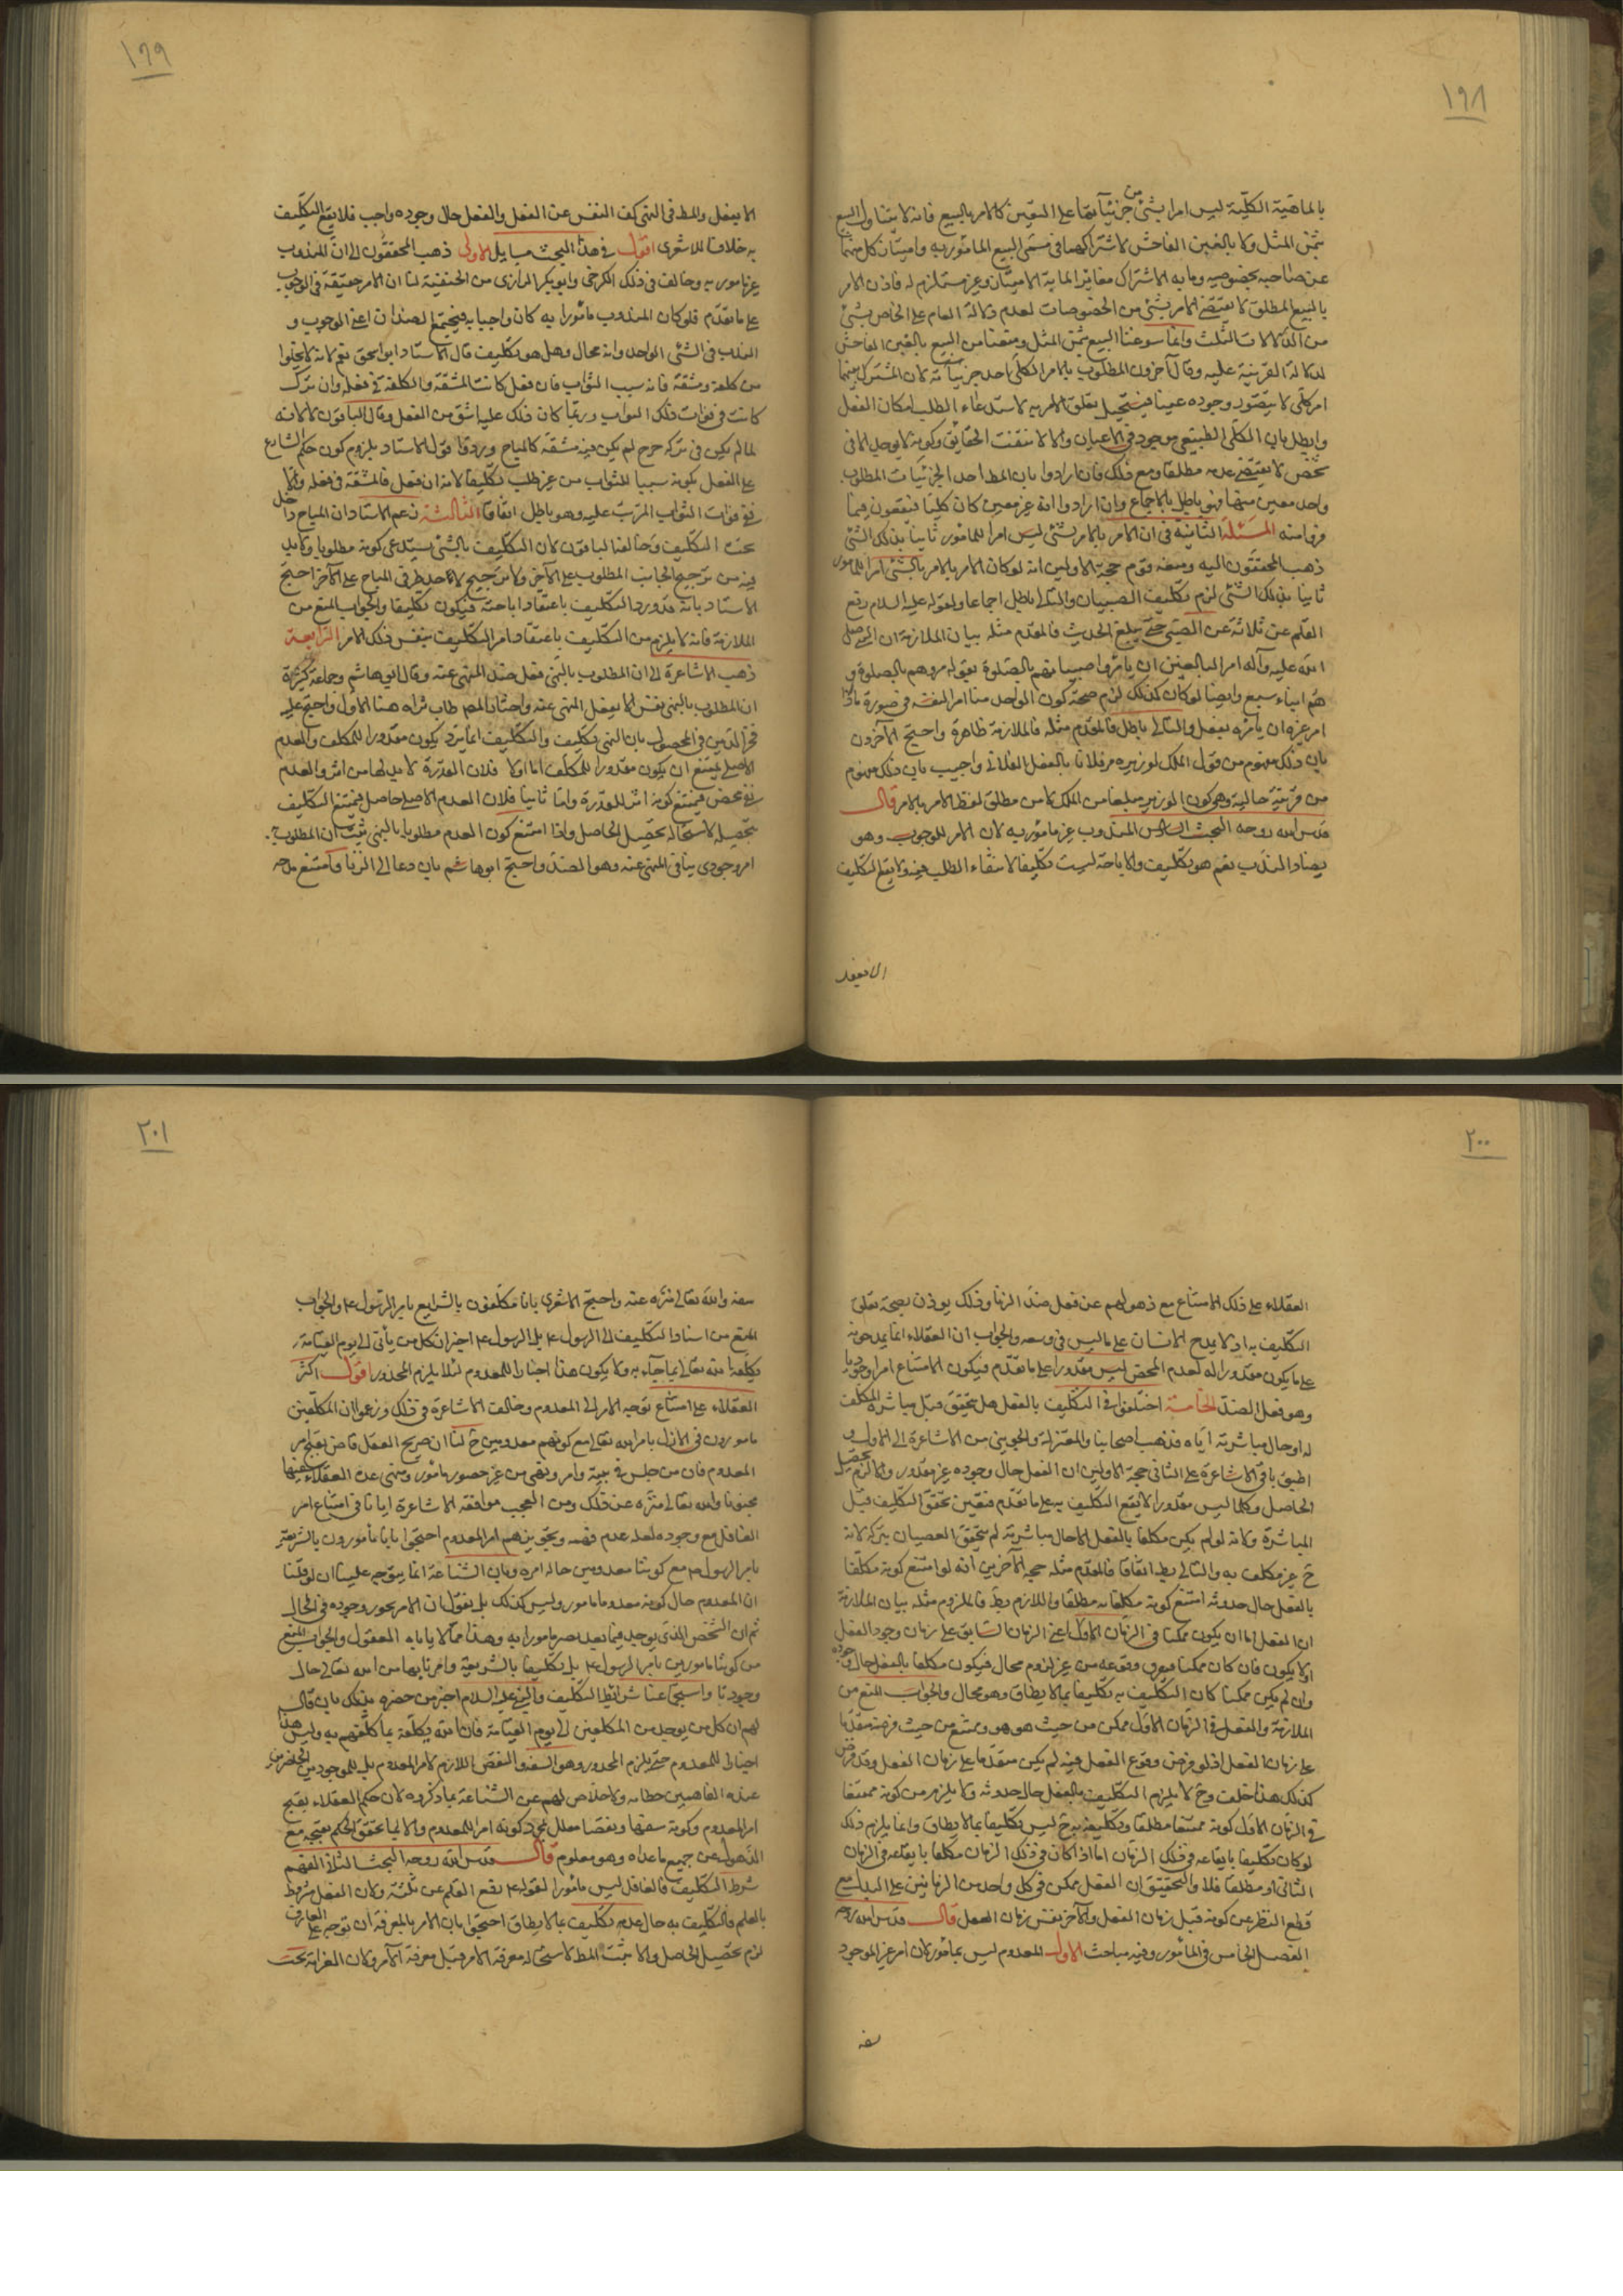 ١٩٨
بالماهية الكلية ليس امرا بشئ من جزئياتها على التعيين كالامر بالبيع فانه لا يتناول البيع
بثمن المثل ولا بالغبن الفاحش لاشتراكهما في مسمى البيع المامور به وامتياز كل منهما
عن صاحبه بخصوصيه وما به الاشتراك مغاير لما به الامتياز وغير مستلزم له فاذن الامر
بالبيع المطلق لا يقتضى الامر بشئ من الخصوصيات لعدم دلالة العام على الخاص بشئ
من الدلالات الثلث وانما سوغنا البيع بثمن المثل ومنعنا من البيع بالغبن الفاحش
لدلالة القرينة عليه وقال آخرون المطلوب بالامر الكلى احد جزئياته لان المشترك بينهما
امر كلى لا يتصور وجوده عينا فيستحيل تعلق الامر به لاستدعاء الطلب امكان الفعل
وابطل بان الكلى الطبيعى موجود في الاعيان والا لانتفت الحقايق وكونه لا يوجد الا في
شخص لا يقتضى عدمه مطلقا ومع ذلك فان ارادوا بان المط احد الجزئيات المطلوب
واحد معين منها فهو باطل بالاجماع وان ارادوا انه غير معين كان كليا فيقعون فيما
فروا منه المسئلة الثانية في ان الامر بالامر بشئ ليس امرا للمامور ثانيا بذلك الشئ
ذهب المحققون اليه ومنعه قوم حجة الاولين انه لو كان الامر بالامر بالشئ امرا للمامور
ثانيا بذلك الشئ لزم تكليف الصبيان والتالى باطل اجماعا ولقوله عليه السلام رفع
القلم عن ثلاثة عن الصبى حتى يبلغ الحديث فالمقدم مثله بيان الملازمة ان النبى صلى
الله عليه وآله امر البالغين ان يامروا صبيانهم بالصلوة بقوله مروهم بالصلوة و
هم ابناء سبع وايضا لو كان كذلك لزم صحة كون الواحد منا امرا لنفسه في صورة ما اذا
امر غيره ان يامره بفعل والتالى باطل فالمقدم مثله فالملازمة ظاهرة واحتج الآخرون
بان ذلك مفهوم من قول الملك لوزيره مر فلانا بالفعل الفلانى واجيب بان ذلك مفهوم
من قرينة حالية وهو كون الوزير مبلغا من الملك لا من مطلق لفظ الامر بالامر قال
قدس الله روحه البحث السادس المندوب غير مامور به لان الامر للوجوب وهو
يضاد الندب نعم هو تكليف والاباحة ليست تكليفا لانتفاء الطلب فيه ولا يقع التكليف
الا بفعل
١٩٩
الا بفعل والمط في النهى كف النفس عن الفعل والفعل حال وجوده واجب فلا يقع التكليف
به خلافا للاشعرى اقول في هذا البحث مسايل الاولى ذهب المحققون الى ان المندوب
غير مامور به وخالف في ذلك الكرخى وابو بكر الرازى من الحنفية لنا ان الامر حقيقة في الوجوب
على ما تقدم فلو كان المندوب مامورا به كان واجبا به فيجتمع الضدان اعنى الوجوب و
الندب في الشئ الواحد وانه محال وهل هو تكليف قال الاستاد ابو اسحق نعم لانه لا يخلوا
من كلفة ومشقة فانه سبب الثواب فان فعل كانت المشقة والكلفة في فعله وان ترك
كانت في فوات ذلك الثواب وربما كان ذلك عليه اشق من الفعل وقال الباقون لا لانه
لما لم يكن في تركه حرج لم يكن فيه مشقة كالمباح وردوا قول الاستاد بلزوم كون حكم الشارع
على الفعل بكونه سببا للثواب من غير طلب تكليفا لانه ان فعل فالمشقة في فعله والا
ففى فوات الثواب المرتب عليه وهو باطل اتفاقا الثالثة زعم الاستاد ان المباح داخل
تحت التكليف وخالفه الباقون لان التكليف بالشئ يستدعى كونه مطلوبا ولا بد
فيه من ترجيح الجانب المطلوب على الآخر ولا ترجيح لاحد طرفى المباح على الآخر احتج
الاستاد بانه قد ورد التكليف باعتقاد اباحته فيكون تكليفا والجواب المنع من
الملازمة فانه لا يلزم من التكليف باعتقاد امر التكليف بنفس ذلك الامر الرابعة
ذهب الاشاعرة الى ان المطلوب بالنهى فعل ضد المنهى عنه وقال ابو هاشم وجماعة كثيرة
ان المطلوب بالنهى نفس ان لا يفعل المنهى عنه واختار المص طاب ثراه هنا الاول واحتج عليه
فخر الدين في المحصول بان النهى تكليف والتكليف انما يرد بما يكون مقدورا للمكلف والعدم
الاصلى يمتنع ان يكون مقدورا للمكلف اما اولا فلان القدرة لا بد لها من اثر والعدم
نفى محض فيمتنع كونه اثرا للقدرة واما ثانيا فلان العدم الاصلى حاصل فيمتنع التكليف
بتحصيله لاستحالة تحصيل الحاصل واذا امتنع كون العدم مطلوبا بالنهى ثبت ان المطلوب
امر وجودى ينافى المنهى عنه وهو الضد واحتج ابو هاشم بان من دعا الى الزنا فامتنع مدحه
٢٠٠
العقلاء على ذلك الامتناع مع ذهولهم عن فعل ضد الزنا وذلك يوذن بصحة تعلق
التكليف به اذ لا يمدح الانسان على ما ليس في وسعه والجواب ان العقلاء انما يمدحونه
على ما يكون مقدورا له لعدم المحض ليس مقدورا على ما تقدم فيكون الامتناع امرا وجوديا
وهو فعل الضد الخامسة اختلفوا في التكليف بالفعل هل يتحقق قبل مباشرة المكلف
له او حال مباشرته اياه فذهب اصحابنا والمعتزلة والجوينى من الاشاعرة الى الاول و
اطبق باقى الاشاعرة على الثانى حجة الاولين ان الفعل حال وجوده غير مقدور والا لزم تحصيل
الحاصل وكلما ليس مقدورا لا يقع التكليف به على ما تقدم فتعين تحقق التكليف قبل
المباشرة ولانه لو لم يكن مكلفا بالفعل الا حال مباشرته لم يتحقق العصيان بتركه لانه
ح غير مكلف به والتالى بط اتفاقا فالمقدم مثله حجة الآخرين انه لو امتنع كونه مكلفا
بالفعل حال حدوثه امتنع كونه مكلفا به مطلقا واللازم بط فالملزوم مثله بيان الملازمة
ان الفعل اما ان يكون ممكنا في الزمان الاول اعنى الزمان السابق على زمان وجود الفعل
او لا يكون فان كان ممكنا فيفرض وقوعه من غير لزوم محال فيكون مكلفا بالفعل حال وجوده
وان لم يكن ممكنا كان التكليف به تكليفا بما لا يطاق وهو محال والجواب المنع من
الملازمة والفعل في الزمان الاول ممكن من حيث هو هو وممتنع من حيث فرضه متقدما
على زمان الفعل اذ لو فرض وقوع الفعل فيه لم يكن متقدما على زمان الفعل وقد فرض
كذلك هذا خلف وح لا يلزم التكليف بالفعل حال حدوثه ولا يلزم من كونه ممتنعا
في الزمان الاول كونه ممتنعا مطلقا وتكليفه به ح ليس تكليفا بما لا يطاق وانما يلزم ذلك
لو كان تكليفا بايقاعه في ذلك الزمان اما اذا كان في ذلك الزمان مكلفا بايقاعه في الزمان
الثانى او مطلقا فلا والتحقيق ان الفعل ممكن في كل واحد من الزمانين على البدل مع
قطع النظر عن كونه قبل زمان الفعل والآخر نفس زمان الفعل قال قدس الله روحه
الفصل الخامس في المامور وفيه مباحث الاول المعدوم ليس بمامور لان امر غير الموجود
سفه
٢٠١
سفه والله تعالى منزه عنه واحتج الاشعرى بانا مكلفون بالشرايع بامر الرسول ع والجواب
المنع من اسناد التكليف الى الرسول ع بل الرسول ع اخبر ان كل من ياتى الى يوم القيامة
يكلفه الله تعالى بما جاء به ولا يكون هذا اخبارا للمعدوم لئلا يلزم المحذور اقول اكثر
العقلاء على امتناع توجه الامر الى المعدوم وخالف الاشاعرة في ذلك وزعموا ان المكلفين
مامورون في الازل بامر الله تعالى مع كونهم معدومين ح لنا ان صريح العقل قاض بقبح امر
المعدوم فان من جلس في بيته وامر ونهى من غير حضور مامور ومنهى عده العقلاء سفيها
مجنونا والله تعالى منزه عن ذلك ومن العجب موافقة الاشاعرة ايانا في امتناع امر
الغافل مع وجوده لعلة عدم فهمه وتجويزهم امر المعدوم احتجوا بانا مامورون بالشريعة
بامر الرسول ع مع كوننا معدومين حالة امره وبان الشناعة انما يتوجه علينا ان لو قلنا
ان المعدوم حال كونه معدوما مامور وليس كذلك بل نقول ان الامر يجوز وجوده في الحال
ثم ان الشخص الذى يوجد فيما بعد يصير مامورا به وهذا مما لا ياباه المعقول والجواب المنع
من كوننا مامورين بامر الرسول ع بل تكليفنا بالشريعة وامرنا بها من الله تعالى حال
وجودنا واستجماعنا شرائط التكليف والنبى عليه السلام اخبر من حضره بذلك بان قال
لهم ان كل من يوجد من المكلفين الى يوم القيامة فان الله يكلفه بما كلفهم به وليس هذا
اخبارا للمعدوم حتى يلزم المحذور وهو السفه والنقص اللازم لامر المعدوم بل للموجودين الحاضرين
عنده الفاهمين خطابه ولا خلاص لهم عن الشناعة بما ذكروه لان حكم العقلاء بقبح
امر المعدوم وكونه سفها ونقصا معلل بمجرد كونه امرا للمعدوم والا لما تحقق الحكم بقبحه مع
الذهول عن جميع ما عداه وهو معلوم قال قدس الله روحه البحث الثانى الفهم
شرط التكليف فالغافل ليس مامورا لقوله ع رفع القلم عن ثلثة ولان الفعل مشروط
بالعلم فالتكليف به حال عدمه تكليف بما لا يطاق احتجوا بان الامر بالمعرفة ان توجه على العارف
لزم تحصيل الحاصل والا ثبت المط لاستحالة معرفة الامر قبل معرفة الآمر ولان الغرامة تجب